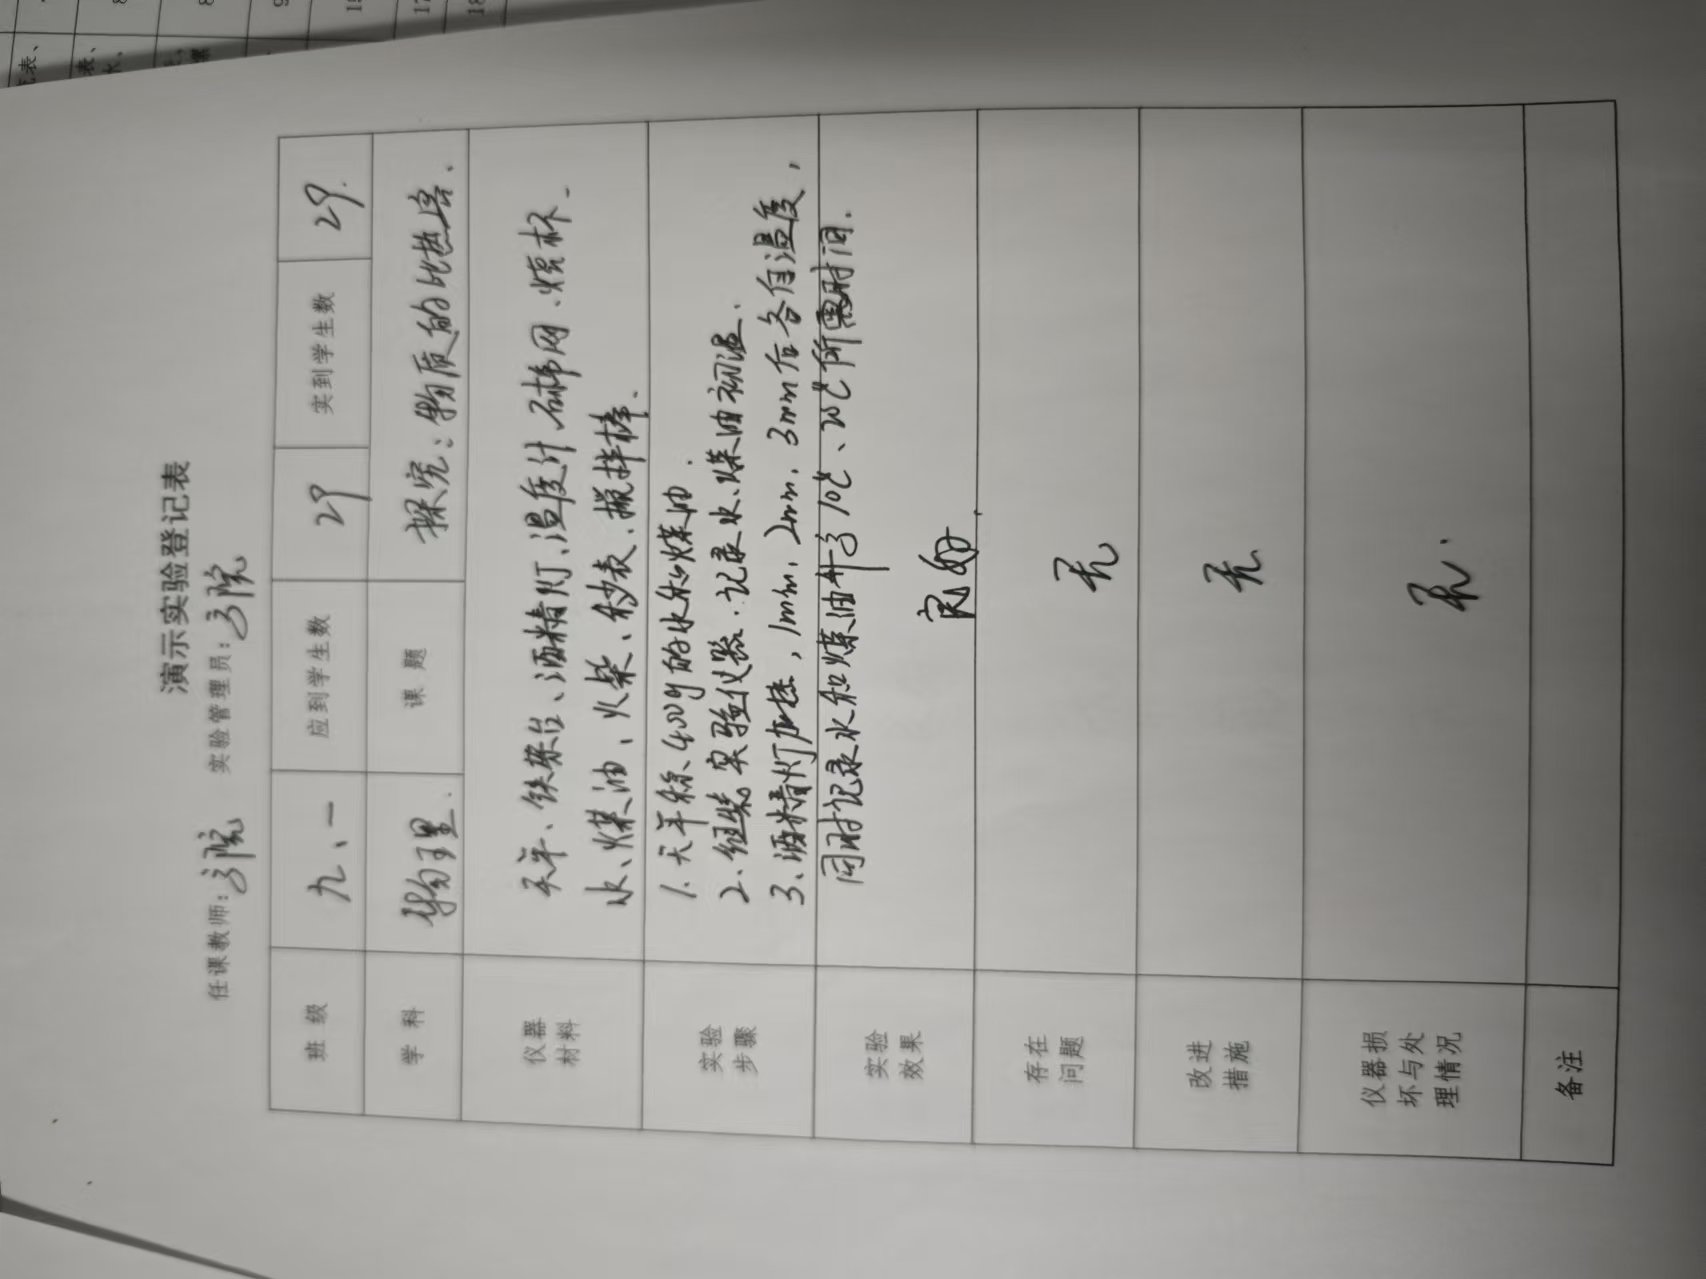 演示实验登记表
任课教师: 实验管理员:
班 级 九、一 应到学生数 29 实到学生数 29.
学 科 物理. 课 题 探究:物质的比热容.
仪器
材料
天平、铁架台、酒精灯、温度计、石棉网、烧杯.
水、煤油、火柴、秒表、搅拌棒.
实验
步骤
1. 天平称、400g的水和煤油.
2. 组装实验仪器.记录水、煤油初温.
3、酒精灯加热,1min,2min,3min后各自温度,
同时记录水和煤油升高10℃、20℃所需时间.
实验
效果
良好.
存在
问题
无
改进
措施
无
仪器损
坏与处
理情况
无.
备注